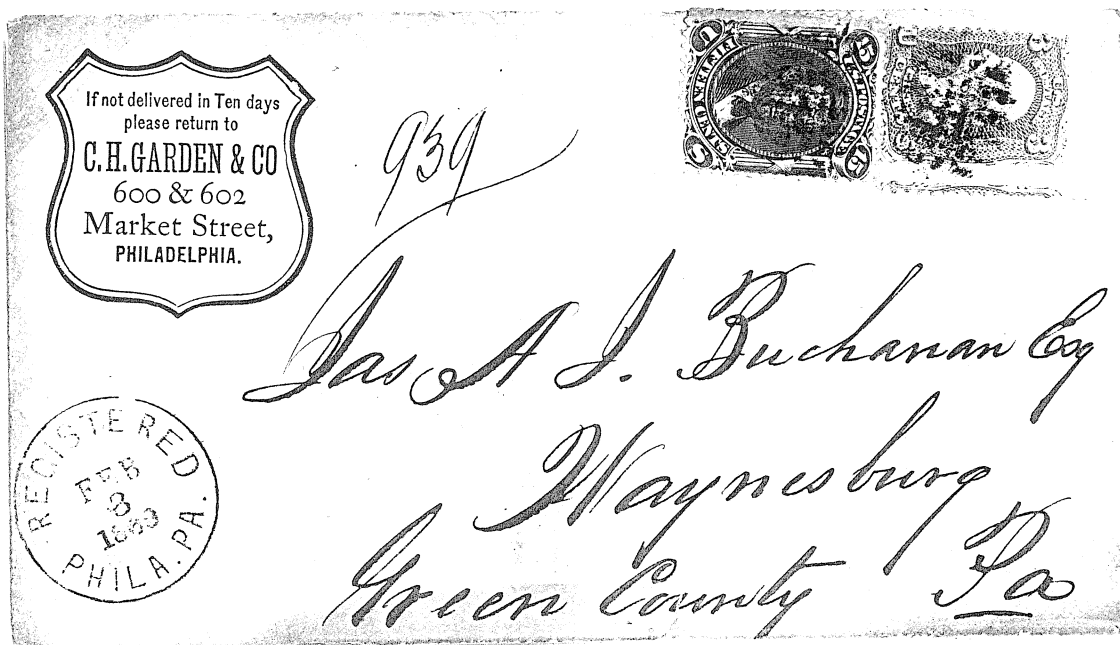 If not delivered in Ten days
please return to
C. H. GARDEN & CO
600 & 602
Market Street,
PHILADELPHIA.
939
Jas A J. Buchanan Esq
Waynesburg
Green County Pa
REGISTERED
FEB
8
PHILA. PA.
U 15
15
3